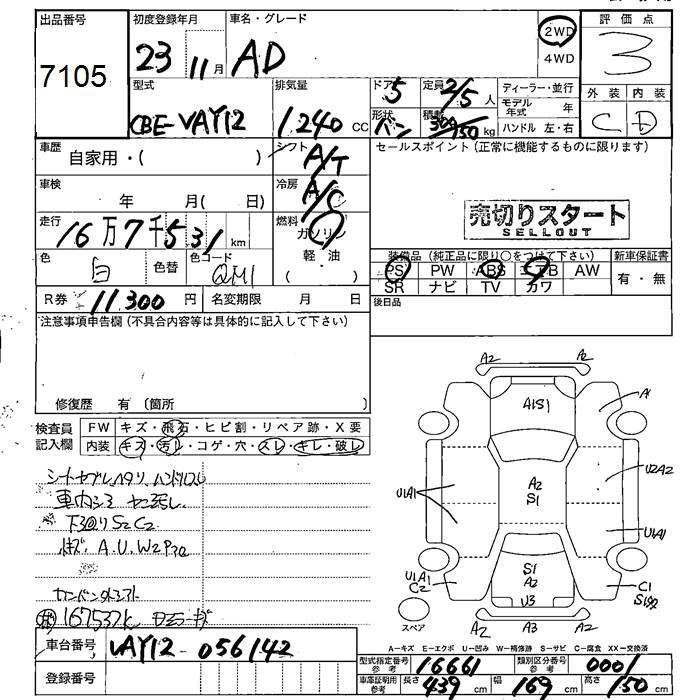 出品番号
7105
初度登録年月
23 11月
車名・グレード
AD
2WD
4WD
評価点
3
外装 内装
C D
型式
CBE-VAY12
排気量
1240 CC
ドア
5
形状
バン
定員
2/5人
積載
kg
ディーラー・並行
モデル年式 年
ハンドル 左・右
車歴
自家用・( )
シフト
A/T
車検
年 月( 日)
冷房
A/C
走行
16万7千531 km
燃料
ガソリン
軽・油
( )
色
白
色替
色コード
QM1
R券 11.300 円
名変期限 月 日
セールスポイント (正常に機能するものに限ります)
売切りスタート
SELLOUT
装備品 (純正品に限り○をつけて下さい)
新車保証書
PS PW ABS AW
SR ナビ TV カワ
有・無
後日品
注意事項申告欄 (不具合内容等は具体的に記入して下さい)
修復歴 有 (箇所 )
検査員
記入欄
FW キズ・飛石・ヒビ割・リペア跡・X要
内装 キズ・汚レ・コゲ・穴・スレ・キレ・破レ
下3回りS2C2
A.U.W2P3
167537k
車台番号 VAY12-056142
登録番号
A2 A2
A1S1
A1
A2
S1
U2A2
U1A1
U1A1
U1A1
C2
S1
A2
U3
C1
A2 A3 A2
スペア
A－キズ E－エクボ U－凹み W－補修跡 S－サビ C－腐食 XX－交換済
型式指定番号
参考
16661
類別区分番号
参考
0001
車庫証明用
参考
長さ 439 cm 幅 169 cm 高さ 150 cm